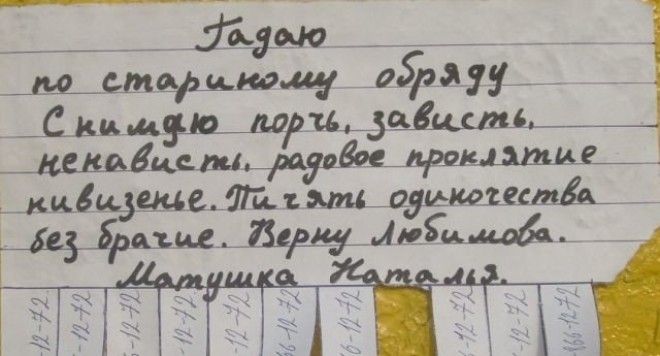 Гадаю
по стариному обряду
Снимаю порчь, зависть,
ненависть, радовое проклятие
нивизенье. Пичять одиночества
без брачие. Верну Любимова.
Матушка Наталья.
-12-72
-12-72
-12-72
-12-72
-12-72
66-12-72
6-12-72
-12-72
-12-72
66-12-72